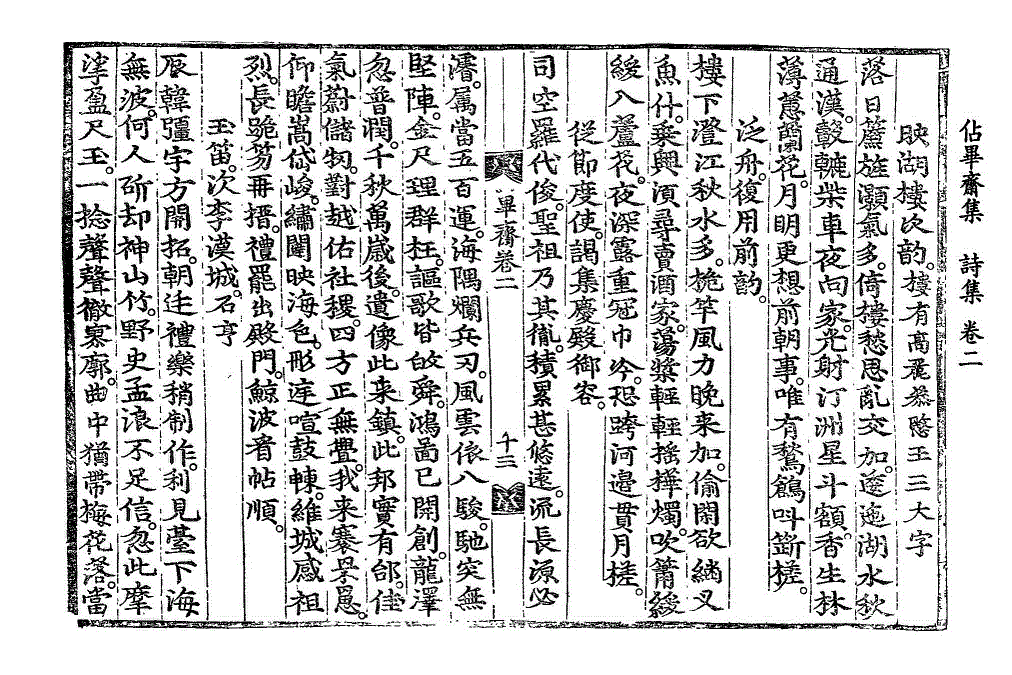 佔畢齋集 詩集 卷二
映湖樓次韵。樓有高麗恭愍王三大字
落日簾旌灝氣多。倚樓愁思亂交加。逶迤湖水秋
通漢。轂轆柴車夜向家。光射汀洲星斗額。香生林
薄蕙蘭花。月明更想前朝事。唯有鶖鶬叫斷槎。
泛舟。復用前韵。
樓下澄江秋水多。桅竿風力晚来加。偸閑欲續叉
魚什。乘興須尋賣酒家。蕩槳輕輕搖樺燭。吹簫緩
緩入蘆花。夜深露重冠巾冷。恐跨河邊貫月槎。
從節度使。謁集慶殿御容。
司空羅代俊。聖祖乃其胤。積累甚悠遠。流長源必
濬。属當五百運。海隅爛兵刃。風雲依八駿。馳突無
堅陣。金尺理群枉。謳歌皆啟舜。鴻啚已開創。龍澤
忽普潤。千秋萬歲後。遺像此来鎮。此邦實有邰。佳
氣蔚儲物。對越佑社稷。四方正無疊。我来褰罘罳。
仰瞻嵩岱峻。繡闥映海色。彤庭喧鼓朄。維城感祖
烈。長跪笏再搢。禮罷出殿門。鯨波音帖順。
玉笛。次李漢城。石亨
辰韓彊宇方開拓。朝廷禮樂稍制作。利見臺下海
無波。何人斫却神山竹。野史孟浪不足信。忽此摩
挲盈尺玉。一捻聲聲徹寥廓。曲中猶帶梅花落。當
畢齋卷二
十三